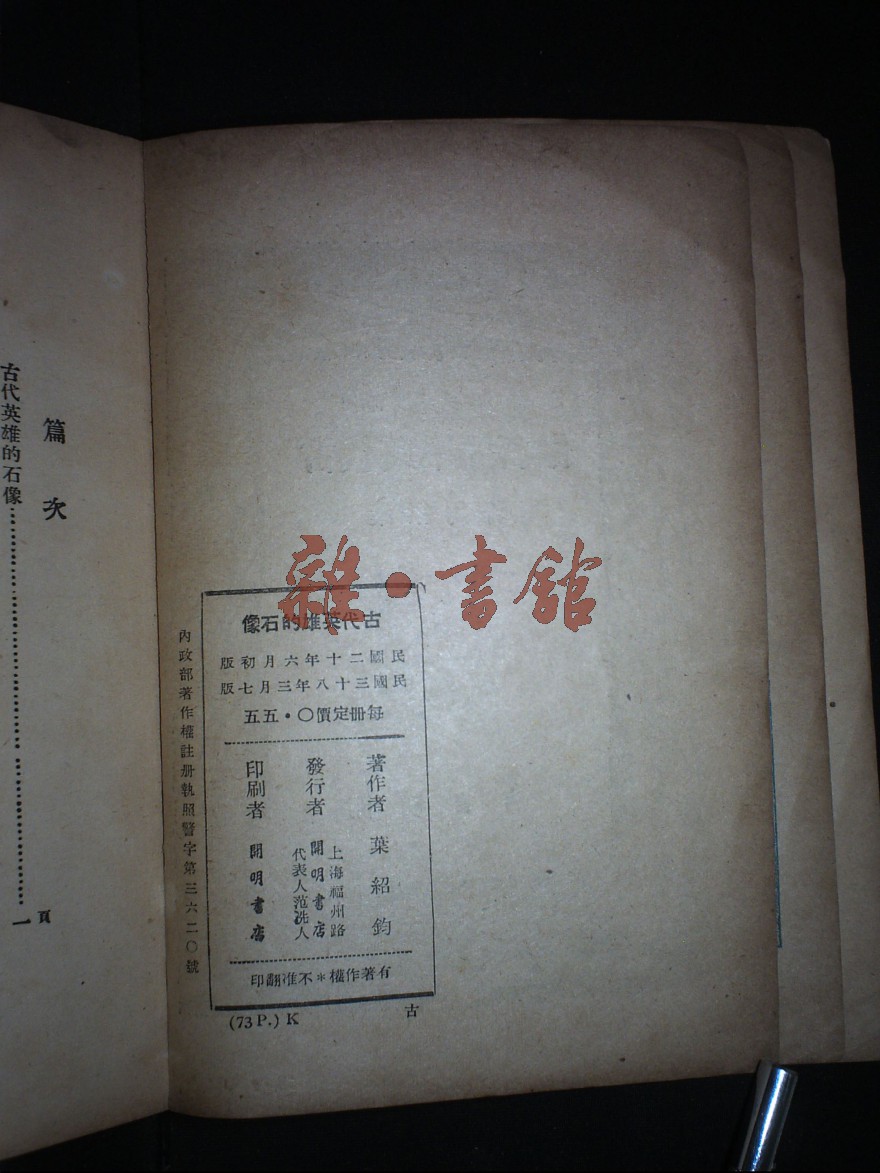 雜·書館
古代英雄的石像
民國二十年六月初版
民國三十八年三月七版
每冊定價〇·五五
著作者 葉紹鈞
發行者 上海福州路
開明書店
代表人范洗人
印刷者 開明書店
有著作權*不准翻印
(73 P.) K
古
內政部著作權註册執照警字第三六二〇號
篇次
頁
古代英雄的石像……………………一